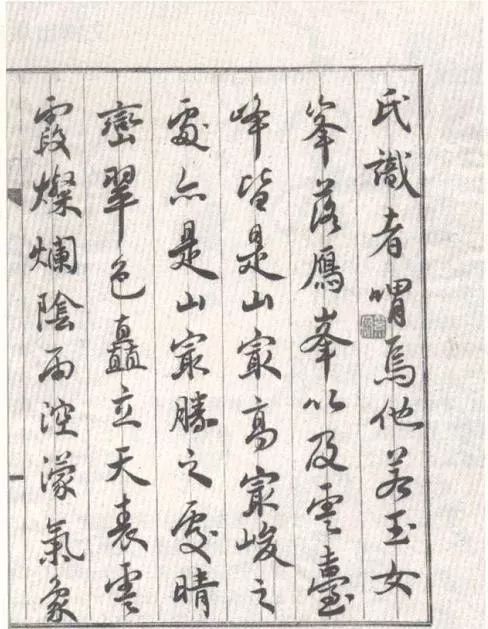 氏識者喟焉他若玉女
峯落鴈峯以及雲臺
峰皆是山㝡高㝡峻之
處亦是山㝡勝之處晴
巒翠色矗立天表雲
霞燦爛陰雨涳濛氣象